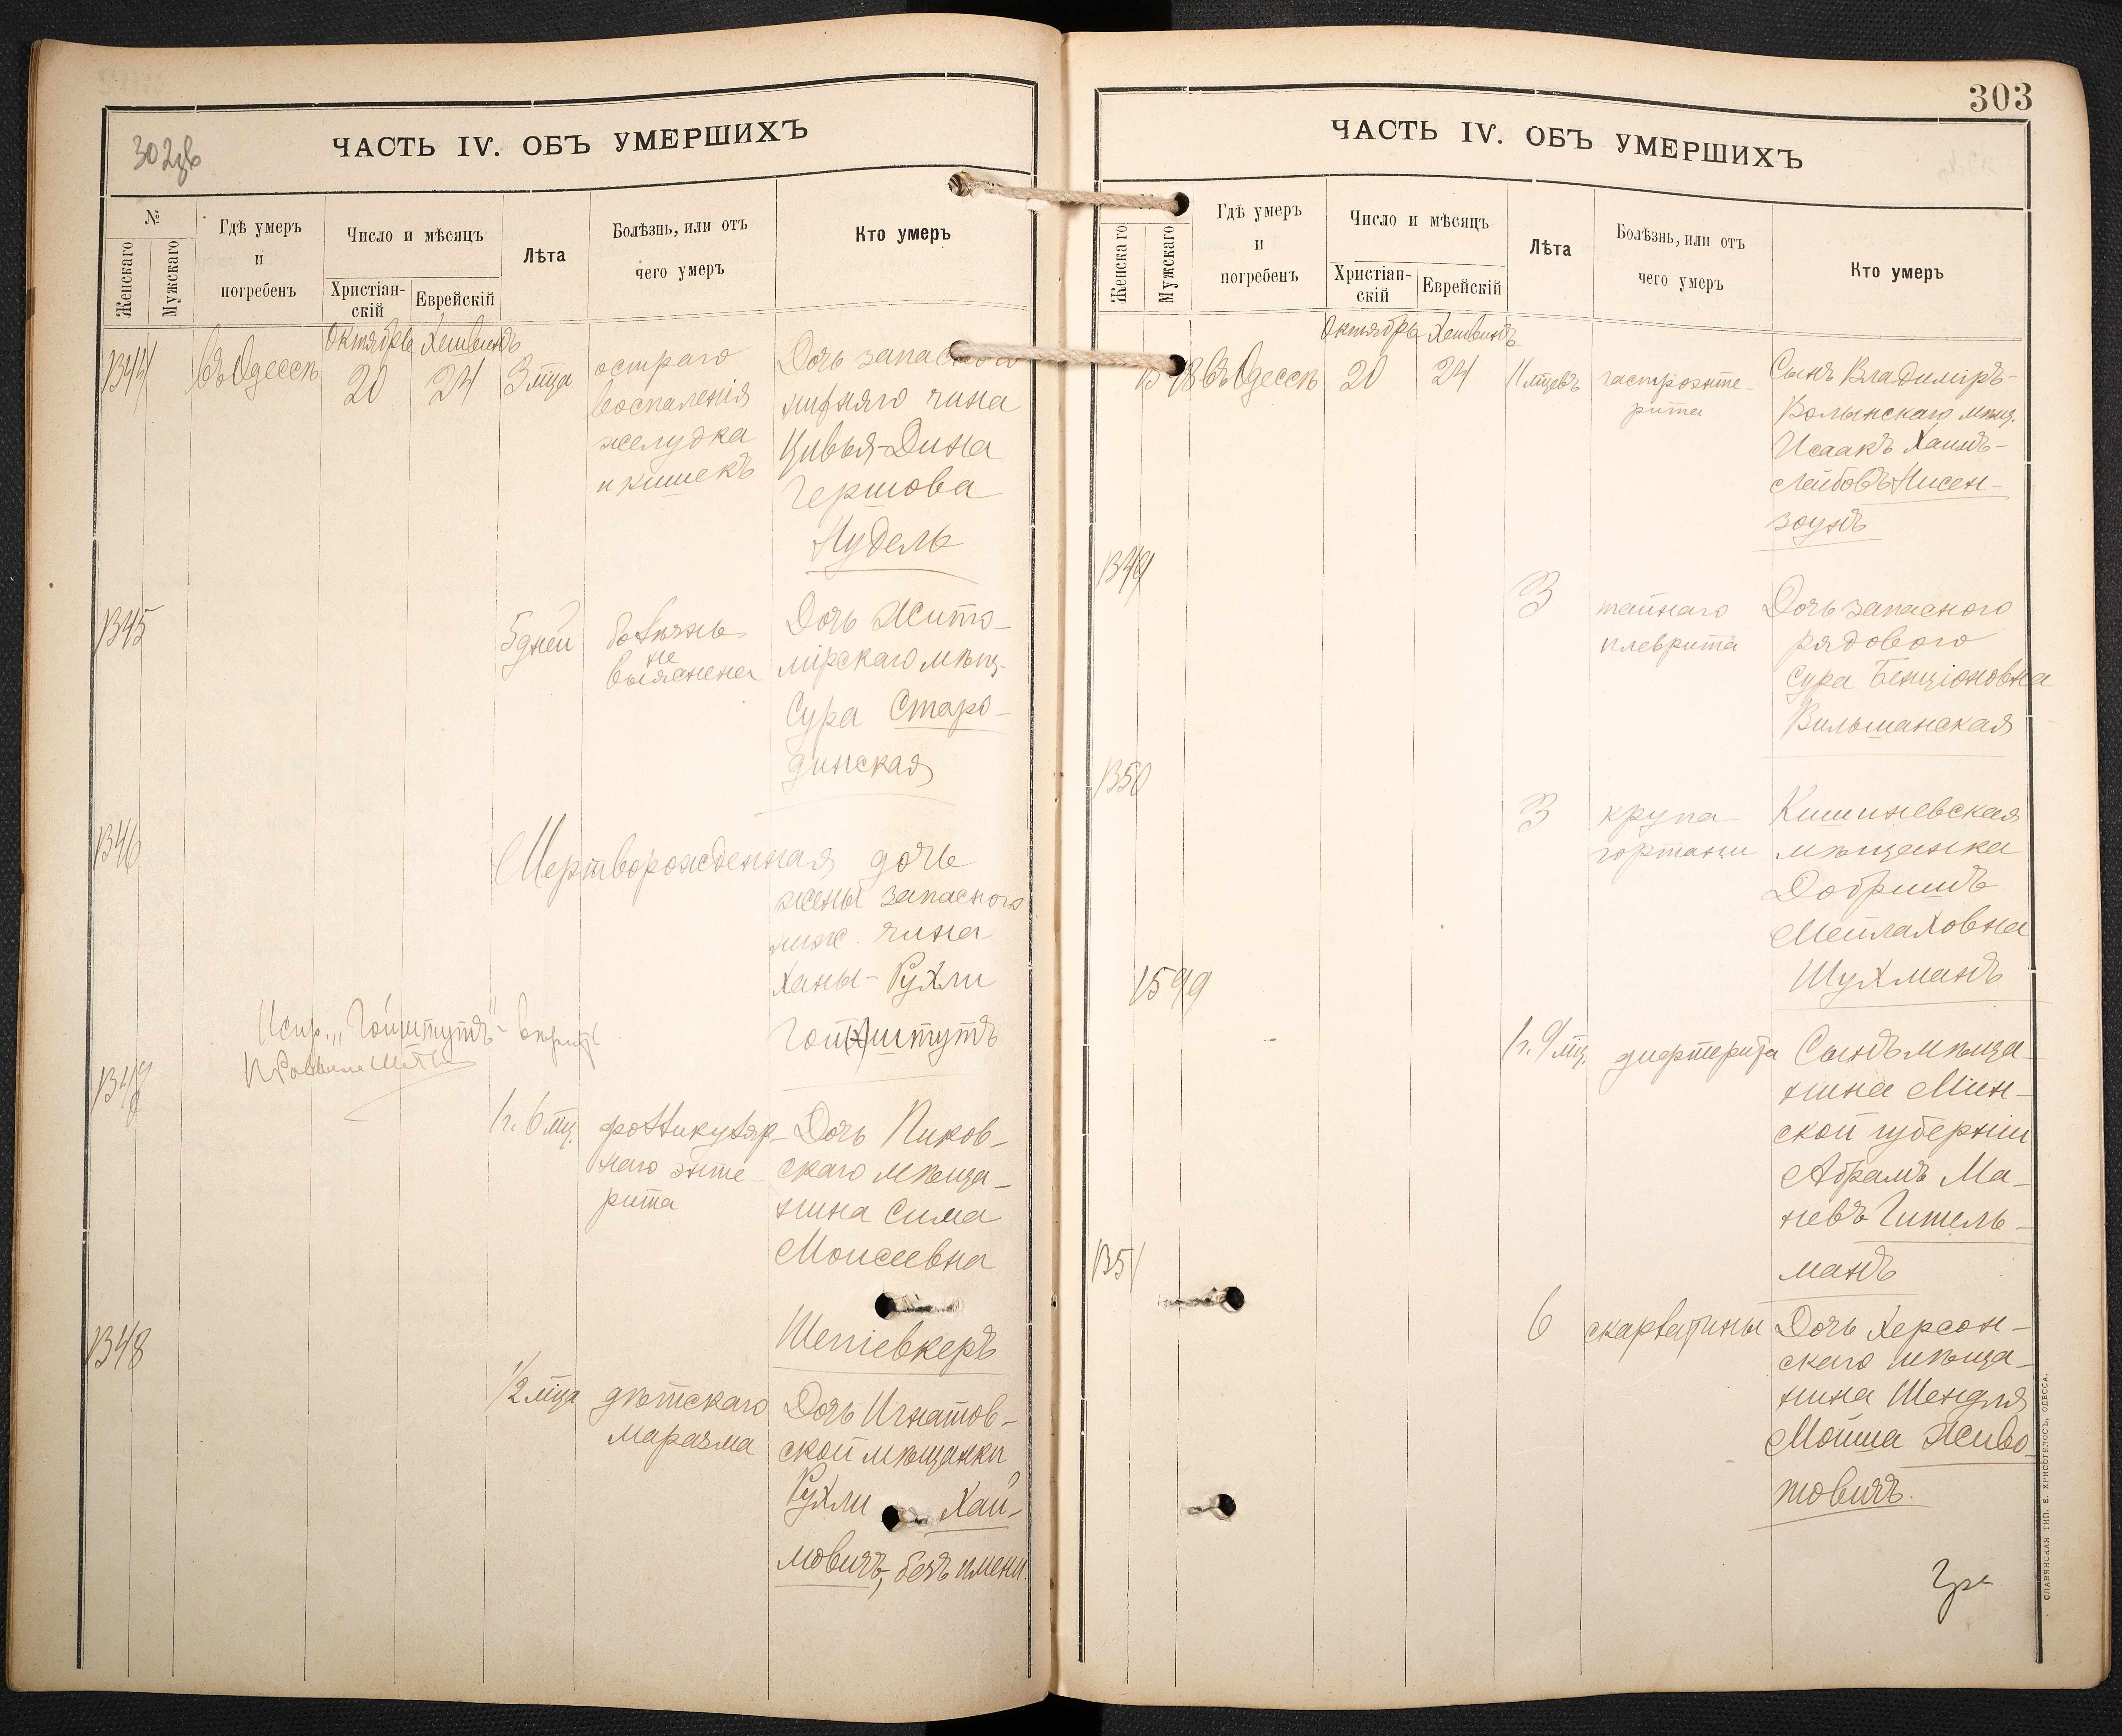 ЧАСТЬ IV. ОБЪ УМЕРШИХЪ
№
Женскаго
Мужскаго
Гдѣ умеръ
и
погребенъ
Число и мѣсяцъ
Христіан-
скій
Еврейскій
Лѣта
Болѣзнь, или отъ
чего умеръ
Кто умеръ
Октябрь Хешвинъ
1344 Въ Одессѣ 20 24 3 мца
остраго
воспаленія
желудка
и кишекъ
Дочь запаснаго
нижняго чина
Цивья-Дина
Гершова
Нудель
1345
5 дней
болѣзнь
не
выяснена
Дочь Жито-
мірскаго мѣщ.
Сура Старо-
динская
1346
Мертворожденная дочь
жены запасного
ниж. чина
Ханы-Рухли
Гойхштутъ
Испр. „Гойштутъ"- вѣрить
1347
1 г. 6 мц.
фолликуляр-
наго энте-
рита
Дочь Пиков-
скаго мѣща-
нина Сима
Моисеевна
Шепіевкеръ
1348
1/2 мца
дѣтскаго
маразма
Дочь Игнатов-
ской мѣщанки
Рухли Хай-
мовичъ, безъ имени.
303
ЧАСТЬ IV. ОБЪ УМЕРШИХЪ
Женскаго
Мужскаго
Гдѣ умеръ
и
погребенъ
Число и мѣсяцъ
Христіан-
скій
Еврейскій
Лѣта
Болѣзнь, или отъ
чего умеръ
Кто умеръ
Октябрь Хешвинъ
Въ Одессѣ 20 24 11 мцевъ
гастроэнте-
рита
Сынъ Владиміръ-
Волынскаго мѣщ.
Исаакъ Хаимъ-
Лейбовъ Нисен-
зоунъ
1349
3
тайнаго
плеврита
Дочь запасного
рядового
Сура Бенціоновна
Вильшанская
1350
3
крупа
гортани
Кишиневская
мѣщанка
Добришъ
Мейлаховна
Шухманъ
1599
1 г. 9 мц.
дифтерита
Сынъ мѣща-
нина Мин-
ской губерніи
Абрамъ Ма-
невъ Гитель-
манъ
1351
6
скарлатины
Дочь Херсон-
скаго мѣща-
нина Шендля
Мошша Живо-
товичъ.
СЛАВЯНСКАЯ ТИП. Е. ХРИСОГЕЛОСЪ, ОДЕССА.